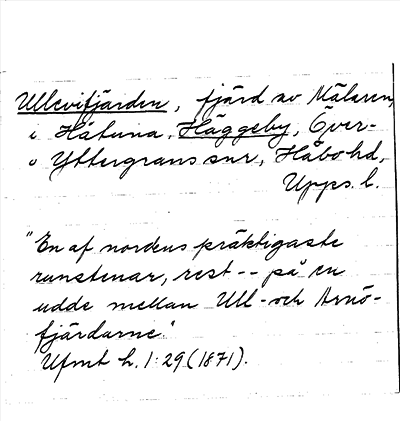 Ullevifjärden, fjärd av Mälaren,
i Håtuna, Häggeby, Över-
o Yttergrans snr, Håbo hd,
Upps. l.
"En af nordens präktigaste
runstenar, rest -- på en
udde mellan Ull- och Arnö-
fjärdarne".
Ufmt h. 1:29 (1871).